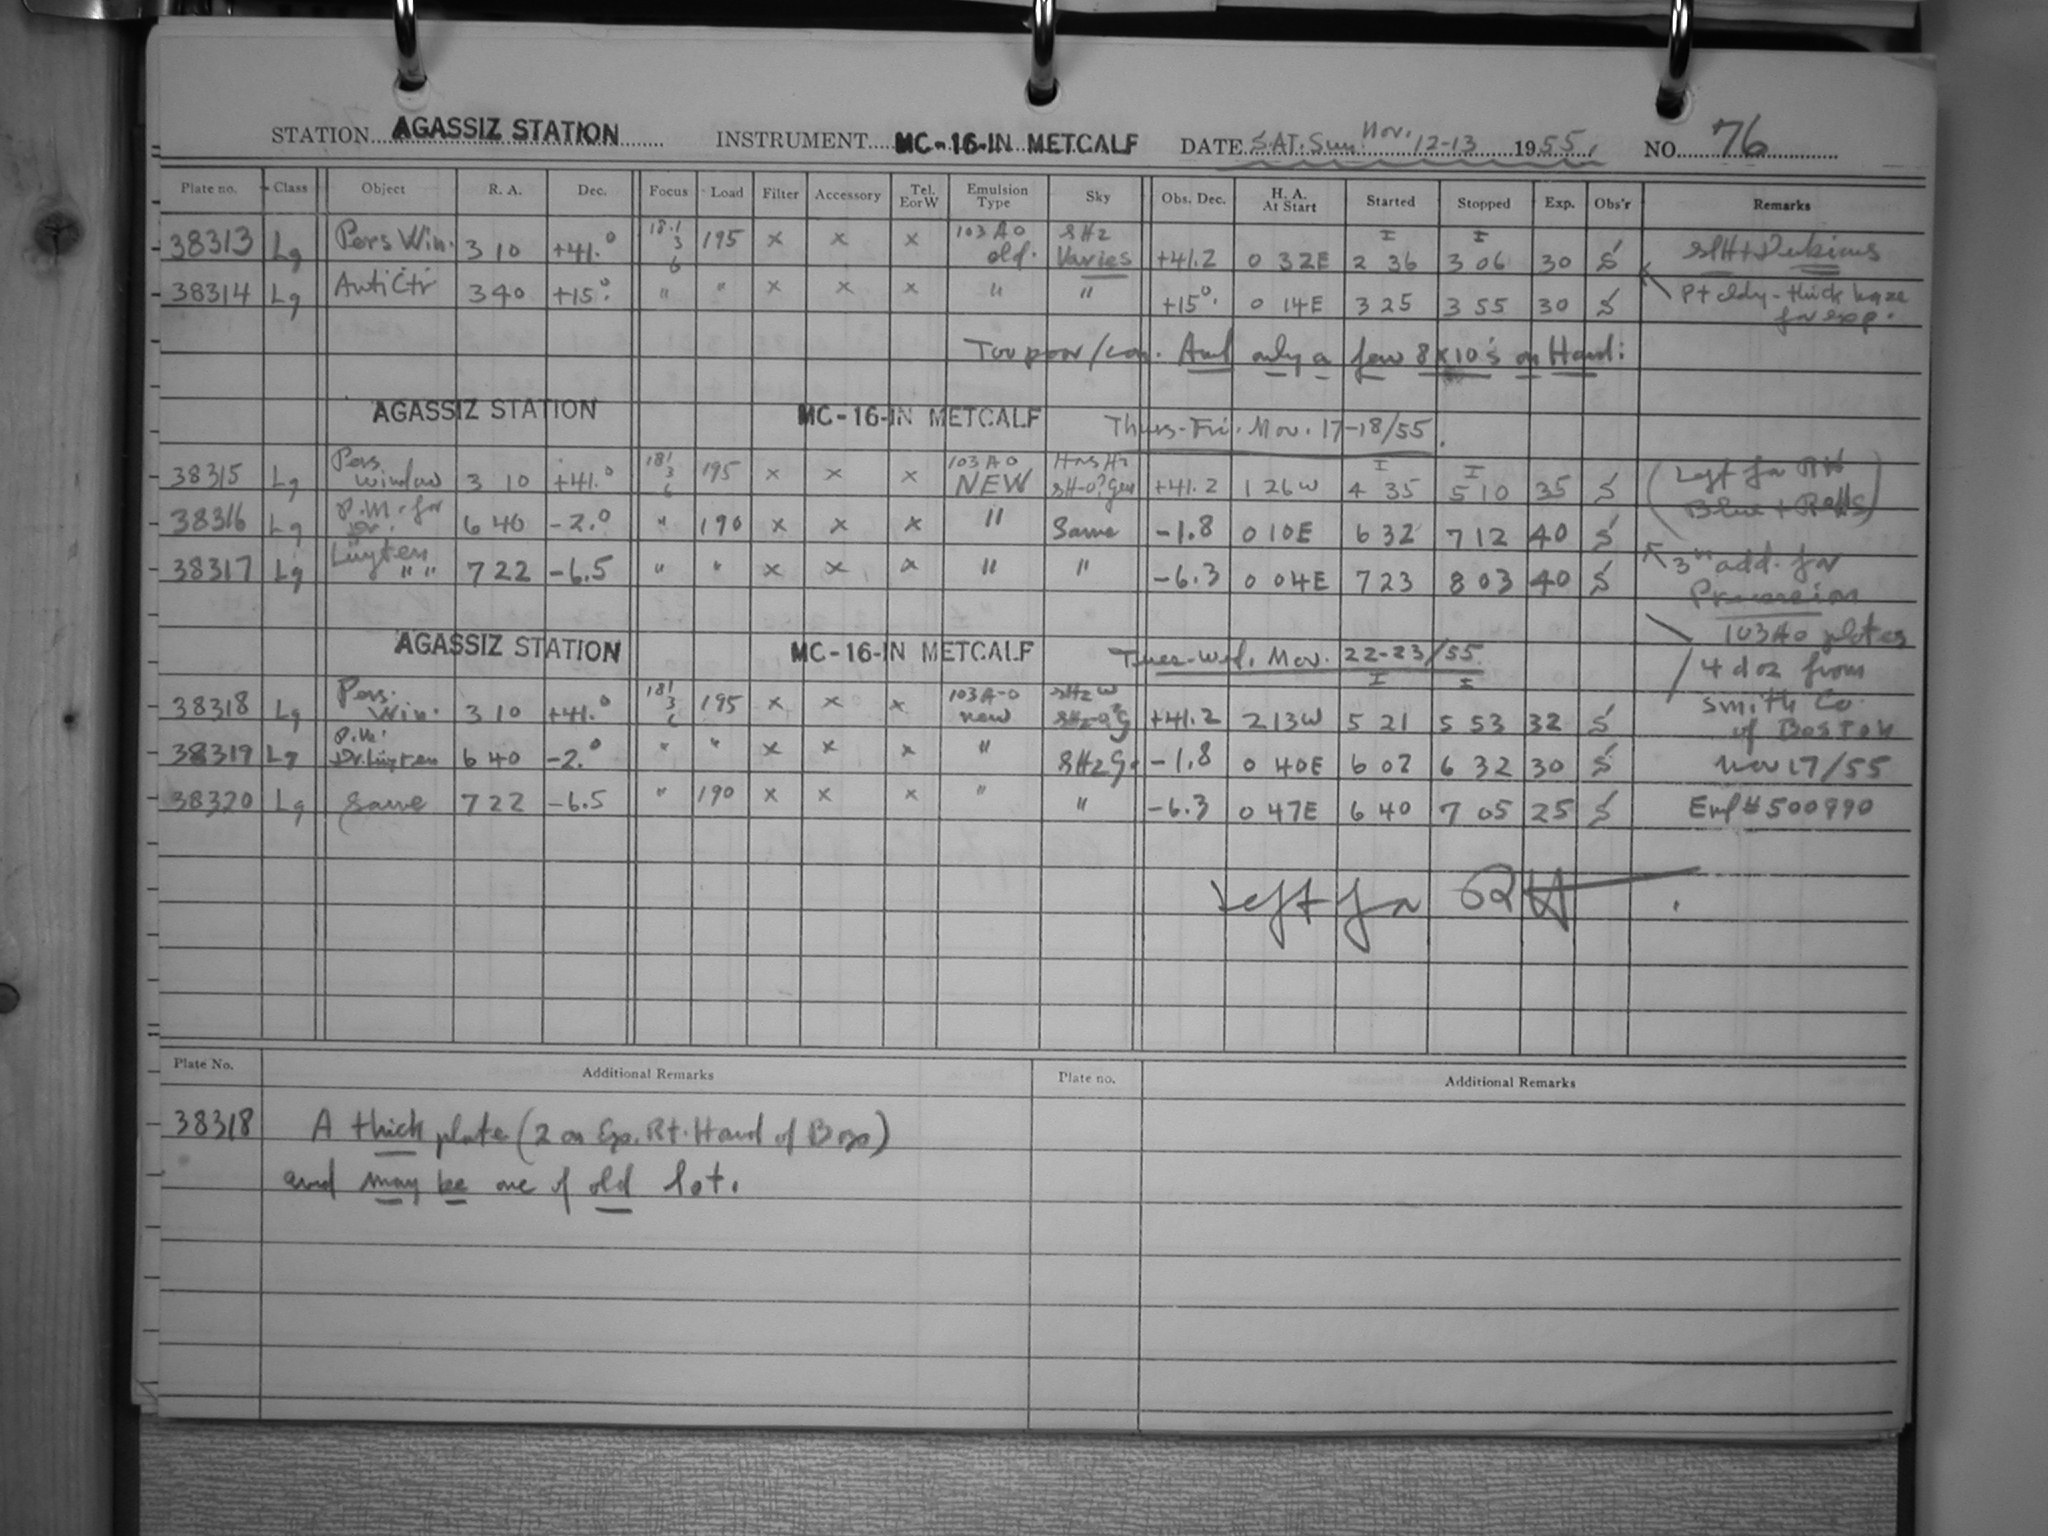 STATION AGASSIZ STATION INSTRUMENT MC-16-IN METCALF DATE SAT. Sun. Nov. 12-13 1955. NO. 76
Plate no. Class Object R. A. Dec. Focus Load Filter Accessory Tel. E or W Emulsion Type Sky Obs. Dec. H. A. At Start Started Stopped Exp. Obs'r Remarks
38313 Lg Pers Win. 3 10 +41.° 18.1 3 6 195 x x x 103 A0 old. SHz Varies +41.2 0 32E 2 36 3 06 30 S
38314 Lg Anti Ctr 3 40 +15.° " " x x x " " +15°. 0 14E 3 25 3 55 30 S Pt cldy - thick haze for exp.
Too poor / And only a few 8x10's on Hand:
AGASSIZ STATION MC-16-IN METCALF Thurs-Fri. Nov. 17-18/55.
38315 Lg Pers Window 3 10 +41.° 181 3 6 195 x x x 103 A0 NEW +41.2 1 26W 4 35 5 10 35 S (Left for RH Blue + Reds)
38316 Lg P.M. for Dr. 6 40 -2.° " 190 x x x " Same -1.8 0 10E 6 32 7 12 40 S
38317 Lg Luyten " " 7 22 -6.5 " " x x x " " -6.3 0 04E 7 23 8 03 40 S 3" add. for Precession
AGASSIZ STATION MC-16-IN METCALF Tues-Wed. Nov. 22-23/55.
103A0 plates
4 doz from
Smith Co.
of Boston
Nov 17/55
Eml # 500990
38318 Lg Pers. Win. 3 10 +41.° 181 3 6 195 x x x 103 A-0 new +41.2 2 13W 5 21 5 53 32 S
38319 Lg P.M. Dr. Luyten 6 40 -2.° " " x x x " SHz G -1.8 0 40E 6 02 6 32 30 S
38320 Lg Same 7 22 -6.5 " 190 x x x " " -6.3 0 47E 6 40 7 05 25 S
Left for RH
Plate No. Additional Remarks Plate no. Additional Remarks
38318 A thick plate (2 on Rt. Hand of Box)
and may be one of old lot.